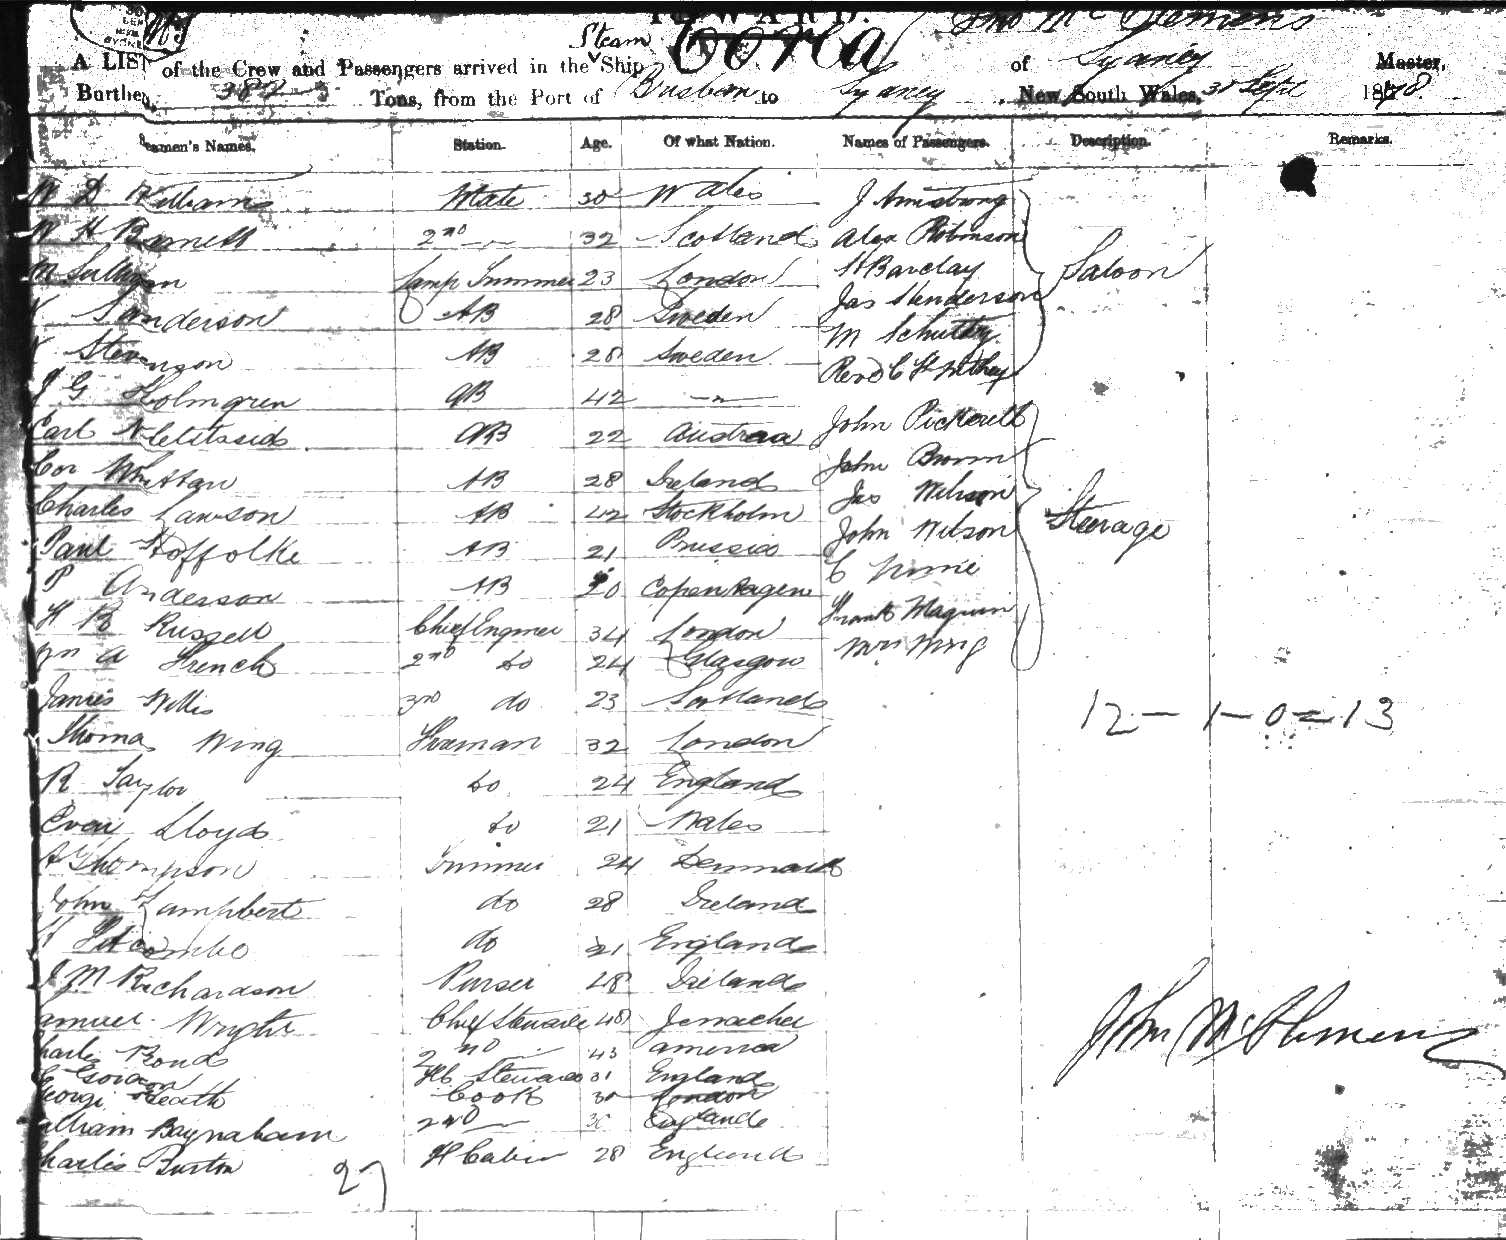 INWARD.
Jno Mc Clemens
A LIST of the Crew and Passengers arrived in the Steam Ship Corea of Sydney Master,
Burthen, 382 Tons, from the Port of Brisbane to Sydney New South Wales, 30 Sept 1878.
Seamen's Names. Station. Age. Of what Nation. Names of Passengers. Description. Remarks.
W D Williams Mate 30 Wales J Armstrong
W H Barnett 2nd 32 Scotland Alex Robinson
M Sullivan Lamp Trimmer 23 London H Barclay Saloon
Sanderson AB 28 Sweden Jas Henderson
Stevenson AB 28 Sweden M
J G Holmgren AB 42 -"- Revd C H
Carl AB 22 Austria John Pickerell
Cor Whittan AB 28 Ireland John Brown
Charles Lawson AB 42 Stockholm Jas Wilson
Paul Hoffolke AB 21 Prussia John Wilson Steerage
P Anderson AB 20 Copenhagen C
H B Russell Chief Engineer 34 London Frank
Wm A French 2nd do 24 Glasgow Mrs Wing
James Willis 3rd do 23 Scotland
12 - 1 - 0 = 13
Thomas Wing Fireman 32 London
R Taylor do 24 England
Evan Lloyd do 21 Wales
A Thompson Trimmer 24 Denmark
John Lampbert do 28 Ireland
H Titcombe do 21 England
J M Richardson Purser 48 Ireland
Samuel Wright Chief Steward 48
Charles Bond 2nd 43 America
John McClemens
C Gordon FC Steward 31 England
George Heath Cook 30 London
William Baynaham 2nd 30 England
Charles Burton H Cabin 28 England
27